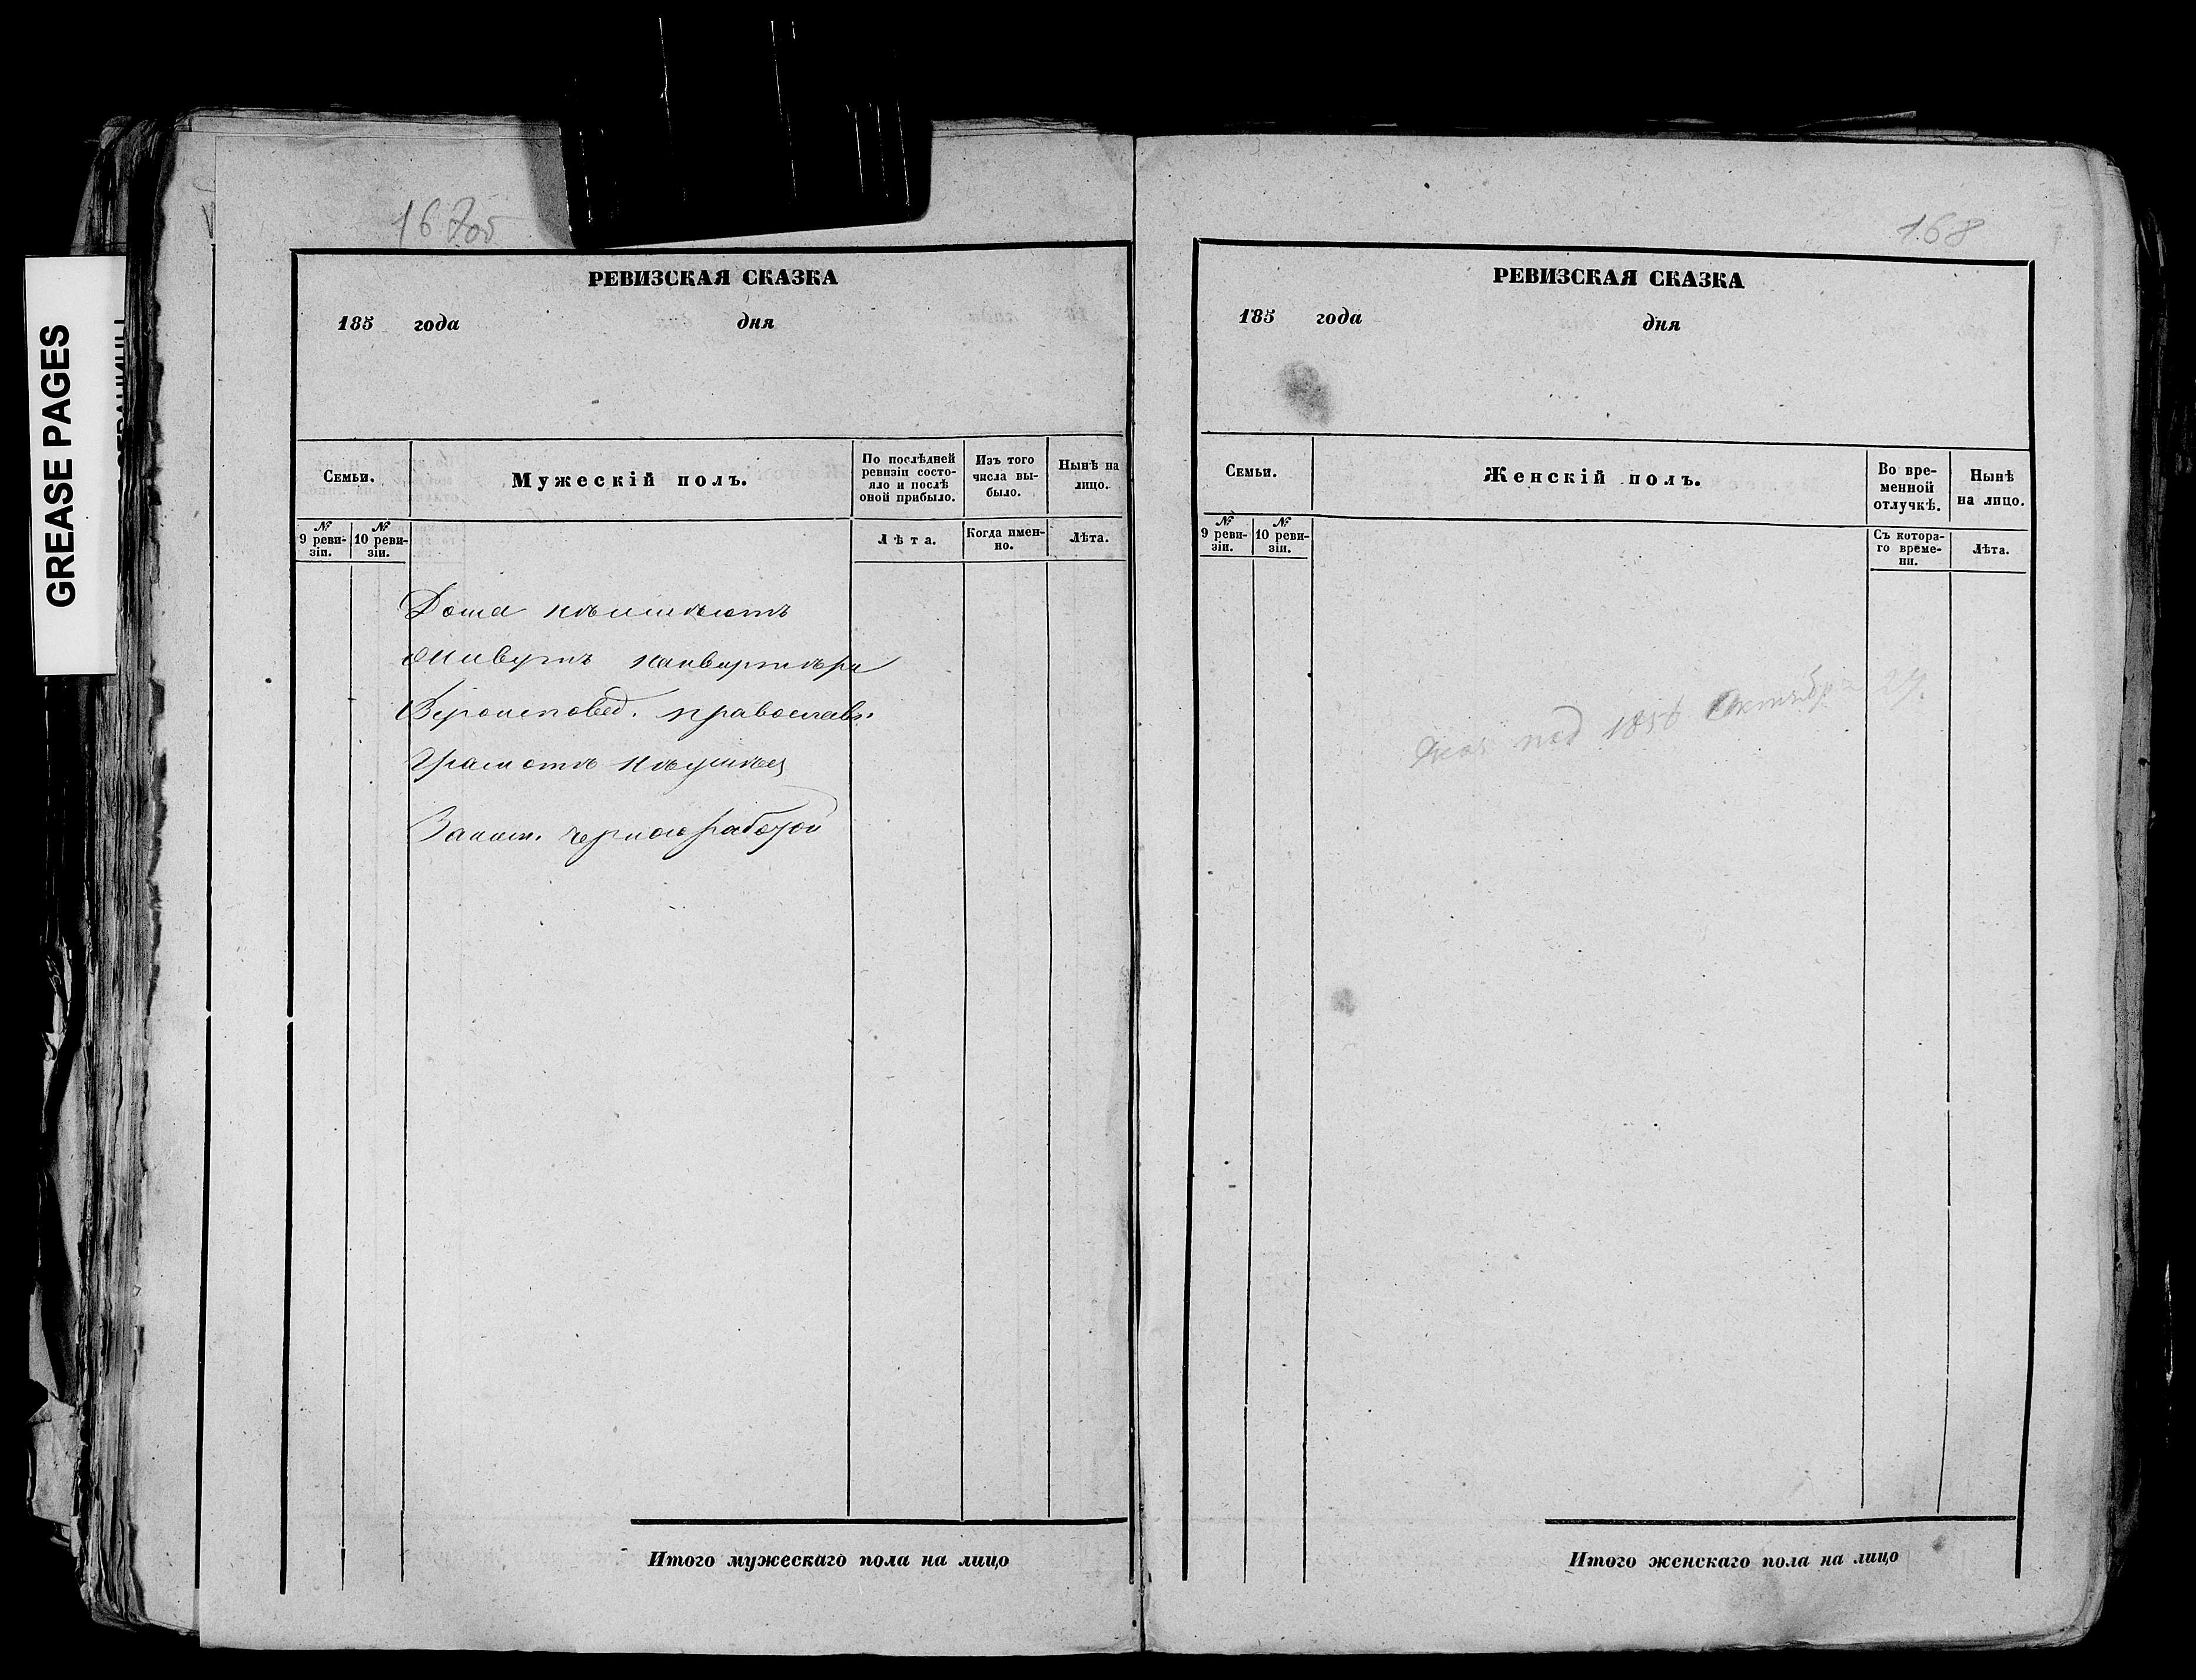 GREASE PAGES
167об
РЕВИЗСКАЯ СКАЗКА
185 года дня
Семьи.
Мужескій полъ.
По послѣдней
ревизіи состо-
яло и послѣ
оной прибыло.
Изъ того
числа вы-
было.
Нынѣ на
лицо.
№
9 реви-
зіи.
№
10 реви-
зіи.
Лѣта.
Когда имен-
но.
Лѣта.
Дома неимѣютъ
Живутъ наквартѣрѣ
Вѣроисповед. православн.
Грамотѣ неумѣетъ
Заним. черною работой
Итого мужескаго пола на лицо
168
РЕВИЗСКАЯ СКАЗКА
185 года дня
Семьи.
Женскій полъ.
Во вре-
менной
отлучкѣ.
Нынѣ
на лицо.
№
9 реви-
зіи.
№
10 реви-
зіи.
Съ котора-
го време-
ни.
Лѣта.
Октября
Итого женскаго пола на лицо